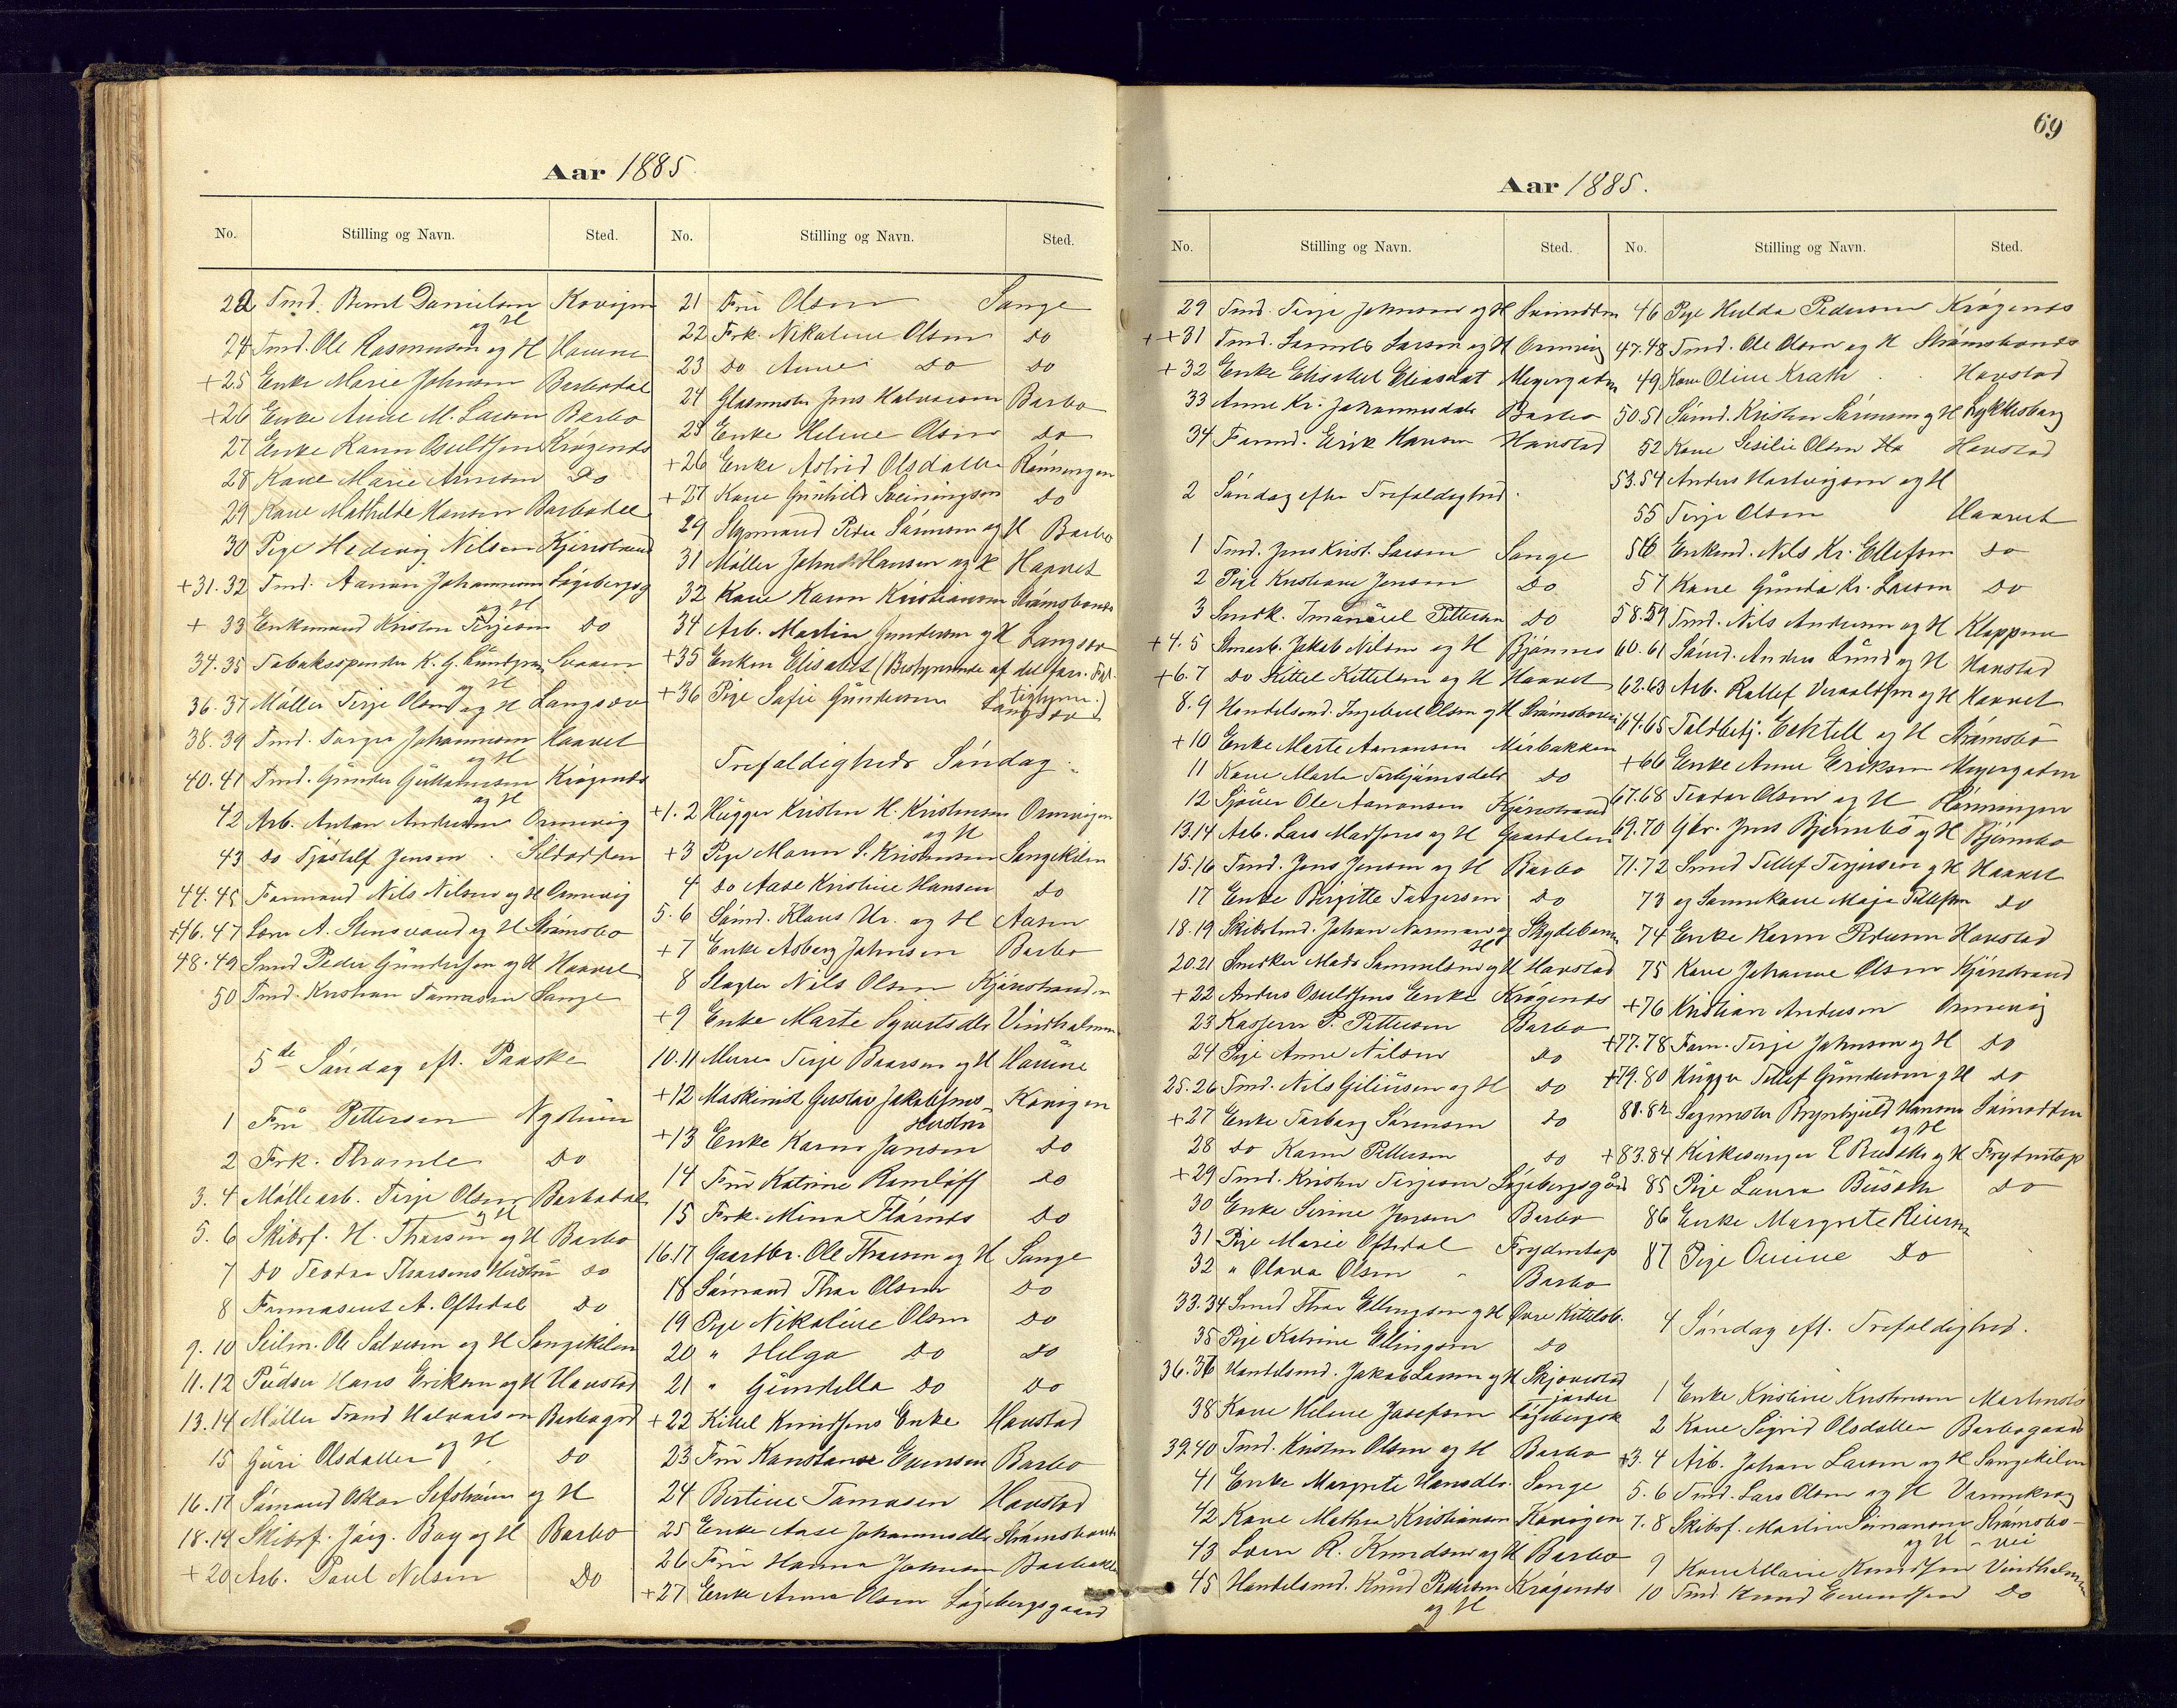 Aar 1885.
No. Stilling og Navn. Sted.
22 Tmd. Bernt Danielsen og H Kovigen
24 Tmd. Ole Rasmussen og H Havene
+25 Enke Marie Johnsen Barbodal
+26 Enke Anne M. Larsen Barbo
27 Enke Karen Osulfsen Krøgenes
28 Kone Marie Arnesen Do
29 Kone Mathilde Hansen Barbodal
30 Pige Hedevig Nilsen Kjenstrand
+31.32 Tmd. Aanon Johannesen og H Løgebergsg
+33 Enkemand Kristen Terjesen Do
34.35 Tobaksspinder K. G. Lundgren og H
36.37 Møller Terje Olsen og H Langsæv
38.39 Tmd. Torger Johannesen og H Haavet
40.41 Tmd. Gunder Guttormsen og H Krøgenes
42 Arb. Anton Andersen Ormevig
43 Do Tjøstolf Jensen Sildodden
44.45 Formand Nils Nilsen og H Ormevig
+46.47 Lorn A. Stensvand og H Strømsbo
48.49 Smed Peder Gundersen og H Haavet
50 Tmd. Kristian Tomassen Songe
5de Søndag eft. Paaske
1 Fru Pettersen
2 Frk. Thomle Do
3.4 Møllearb. Terje Olsen og H Barbodal
5.6 Skibsf. H. Thorsen og H Barbo
7 Do Teodor Thorsens Hustru Do
8 A. Oftedal Do
9.10 Seilm. Ole Salvesen og H Songekilen
11.12 Pudser Hans Eriksen og H Havstad
13.14 Møller Trond Halvorsen og H Barbogrd
15 Guri Olsdatter Do
16.17 Sømand Oskar og H
18.19 Skibsf. Jørg. Boy og H Barbo
+20 Arb. Paul Nilsen Do
No. Stilling og Navn. Sted.
21 Fru Olsen Songe
22 Frk. Nikoline Olsen Do
23 Do Anne Do Do
24 Glasmester Jens Halvorsen Barbo
25 Enke Helene Olsen Do
+26 Enke Astrid Olsdatter Rønningen
+27 Kone Gunhild Sveinungsen Do
29 Peder Sørensen og H Barbo
31 Møller John Hansen og H Haavet
32 Kone Karen Kristiansen Strømsbones
34 Arb. Martin Gundersen og H Langsæv
+35 Enken Elisabet (Bestyrerinde af det forr. Fat-
tighjem.)
+36 Pige Sofie Gundersen Langsæv
Trefoldigheds Søndag.
+1.2 Hugger Kristen H. Kristensen og H Ormevigen
+3 Pige Maren S. Kristensen Songekilen
4 Do Aase Kristine Hansen Do
5.6 Sømd. Klaus Ur. og H Aasen
+7 Enke Asborg Johnsen Barbo
8 Slagter Nils Olsen Kjenstranden
+9 Enke Marte Syvertsdtr Vindholmen
10.11 Murer Terje Baarsen og H Havene
+12 Maskinist Gustav Jakobsens Hustru Kovigen
+13 Enke Karen Jensen Do
14 Fru Katrine Ramløff Do
15 Frk. Mina Flornes Do
16.17 Gaardbr. Ole Thorsen og H Songe
18 Sømand Thor Olsen Do
19 Pige Nikoline Olsen Do
20 " Helga Do Do
21 " Gundella Do Do
+22 Kittel Knudsens Enke Havstad
23 Fru Konstanse Evensen Barbo
24 Bertine Tomasen Havstad
25 Enke Aase Johannesdtr Strømsbones
26 Fru Hanna Johnsen
+27 Enke Anna Olsen Løgebergsgaard
69
Aar 1885.
No. Stilling og Navn. Sted.
29 Tmd. Terje Johnsen og H
++31 Tmd. Samuel Larsen og H Ormevig
+32 Enke Elisabet Eliasdat Meyergaden
33 Anne Kr. Johannesdatr Barbo
34 Formd. Erik Hansen Havstad
2 Søndag efter Trefoldighed.
1 Tmd. Jens Krist. Larsen Songe
2 Pige Kristiane Jensen Do
3 Smedk. Imanuel Pettersen Do
+4.5 Smarb. Jakob Nilsen og H Bjønnes
+6.7 Do Kittel Kittelsen og H Haavet
8.9 Handelsmd. Ingebret Olsen og H Strømsboveien
+10 Enke Marte Aanonsen Mørbakken
11 Kone Marte Torbjørnsdatr Do
12 Ole Aanonsen Kjenstrand
13.14 Arb. Lars Madsens og H Gaasdalen
15.16 Tmd. Jens Jensen og H Barbo
17 Enke Birgitte Torgersen Do
18.19 Skibstmd. Johan Norman og H Skydebanen
20.21 Snedker Mads Samuelsen og H Havstad
+22 Anders Osulfsens Enke Krøgenes
23 Kasserer P. Pettersen Barbo
24 Pige Anne Nilsen Do
25.26 Tmd. Nils Giliusen og H Do
+27 Enke Torborg Sørensen Do
28 Do Karen Pettersen Do
+29 Tmd. Kristen Terjesen Løgebergsgård
30 Enke Serine Jensen Barbo
31 Pige Marie Oftedal Frydentop
32 " Olava Olsen Barbo
33.34 Smed Thor Ellingsen og H Øvre Kittelsb.
35 Pige Katrine Ellingsen Do
36.37 Handelsmd. Jakob Larsen og H
38 Kone Helene Josefsen
39.40 Tmd. Kristen Olsen og H Barbo
41 Enke Margrete Hansdtr. Songe
42 Kone Mathea Kristiansen Kovigen
43 Loren R. Knudsen og H Barbo
45 Handelsmd. Knud Pedersen og H Krøgenes
No. Stilling og Navn. Sted.
46 Pige Hulda Pedersen Krøgenes
47.48 Tmd. Ole Olsen og H Strømsbones
49 Kone Oline Krath Havstad
50.51 Sømd. Kristen Sørensen og H Lykkesborg
52 Kone Sesilie Olsen Ho Havstad
53.54 Anders Hartvigsen og H
55 Terje Olsen Haavet
56 Enkemd. Nils Kr. Ellefsen Do
57 Kone Gunda Kr. Larsen Do
58.59 Tmd. Nils Andersen og H Kloppene
60.61 Sømd. Anders Lund og H Havstad
62.63 Arb. Rollef Veraldsen og H Haavet
64.65 Toldbetj. Ecktell og H Strømsbo
+66 Enke Anne Eriksen Meyergaden
67.68 Teodor Olsen og H Rønningen
69.70 Gbr. Jens Bjørnebo og H Bjørnebo
71.72 Smed Tellef Terjesen og H Haavet
73 og Sønnekone Maja Tellefsen Do
74 Enke Karen Pedersen Havstad
75 Kone Johanne Olsen Kjenstrand
+76 Kristian Andersen Ormevig
+77.78 Form. Terje Johnsen og H Do
+79.80 Hugger Tellef Gundersen og H Do
81.82 Sagmester Brynhjuld Hansen og H
+83.84 Kirkesanger E Buseth og H Frydentop
85 Pige Laura Buseth Do
86 Enke Margrete Reiersen
87 Pige Do
4 Søndag eft. Trefoldighed.
1 Enke Kristine Kristensen
2 Kone Sigrid Olsdatter Barbogaard
+3.4 Arb. Johan Larsen og H Songekilen
5.6 Tmd. Lars Olsen og H Vennekrog
7.8 Skibsf. Martin Simonsen og H Strømsbo-
vei
9 Kone Marie Knudsen Vindholmen
10 Tmd. Knud Evensen Do